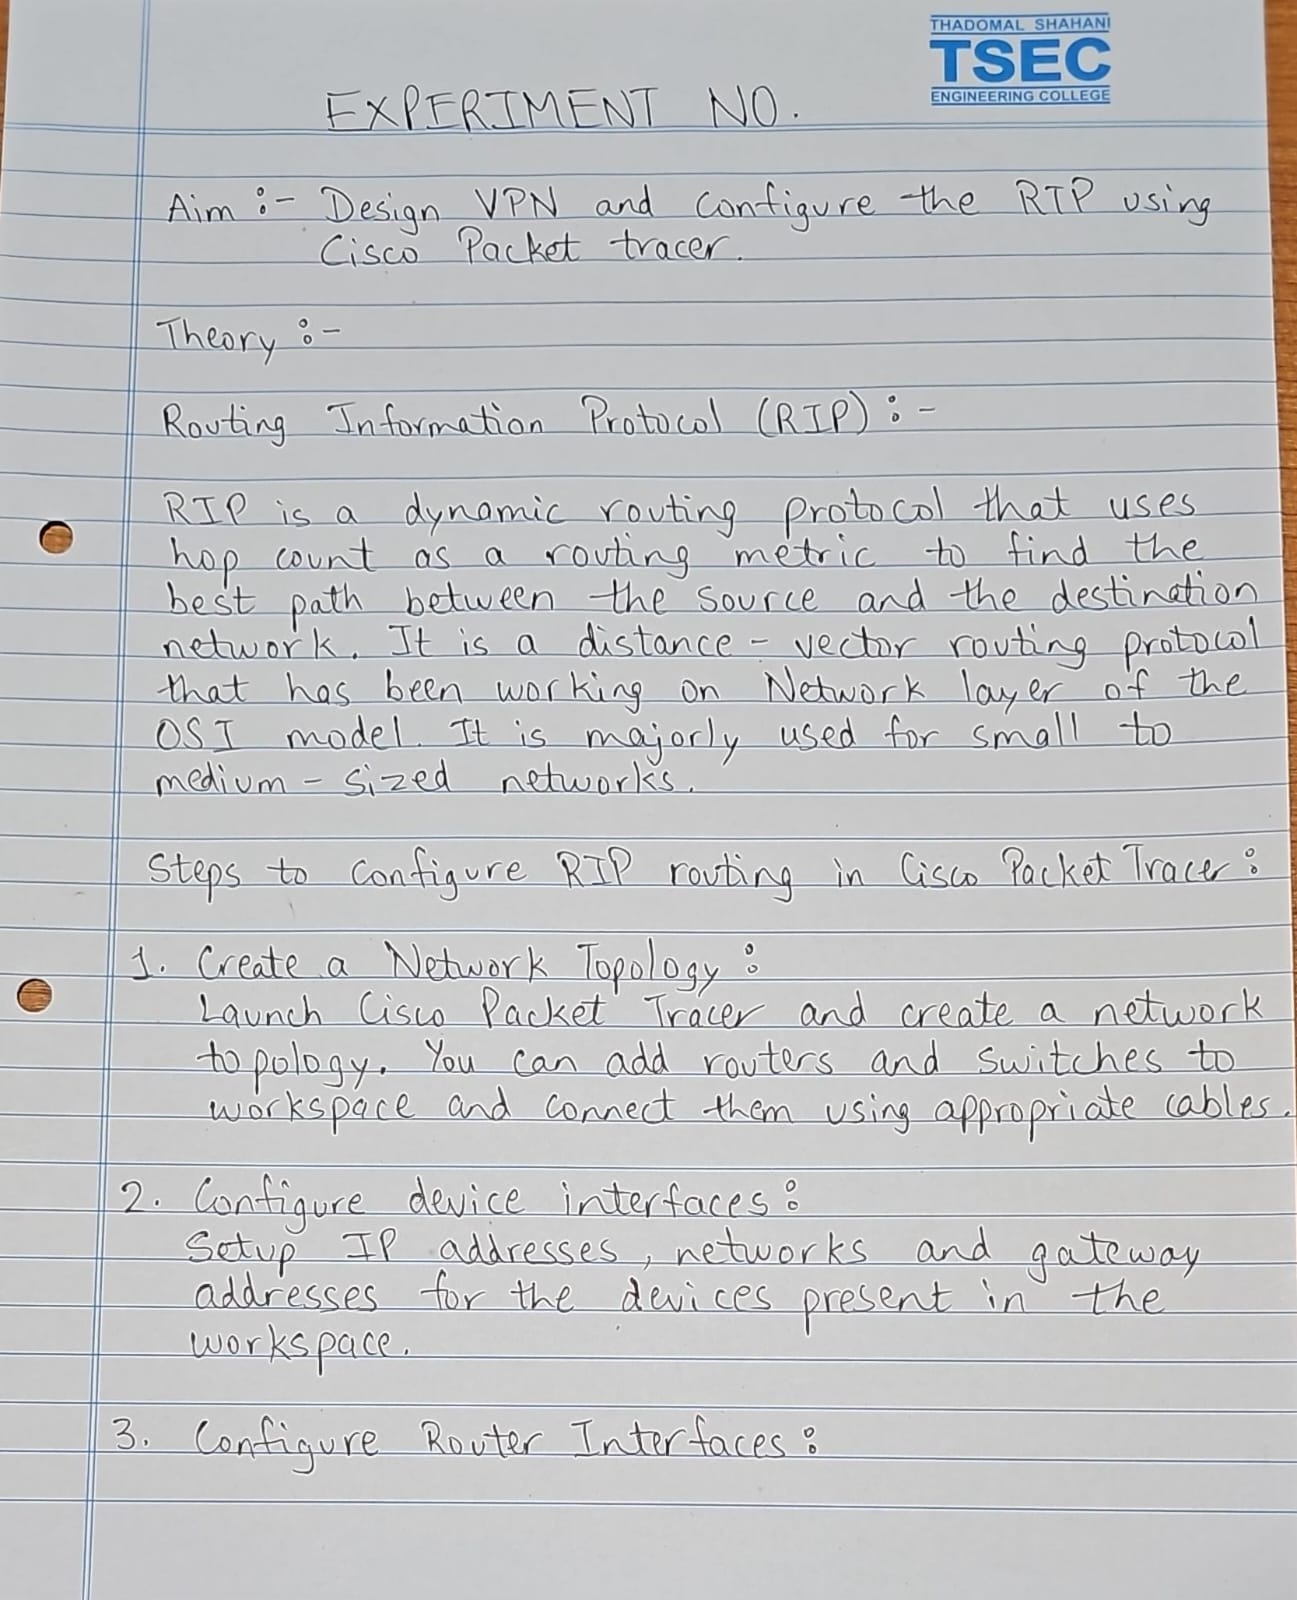 THADOMAL SHAHANI
TSEC
ENGINEERING COLLEGE
EXPERIMENT NO.
Aim :- Design VPN and configure the RIP using
Cisco Packet tracer.
Theory :-
Routing Information Protocol (RIP) :-
RIP is a dynamic routing protocol that uses
hop count as a routing metric to find the
best path between the source and the destination
network. It is a distance - vector routing protocol
that has been working on Network layer of the
OSI model. It is majorly used for small to
medium - sized networks.
Steps to configure RIP routing in Cisco Packet Tracer :
1. Create a Network Topology :
Launch Cisco Packet Tracer and create a network
topology. You can add routers and switches to
workspace and connect them using appropriate cables.
2. Configure device interfaces :
Setup IP addresses, networks and gateway
addresses for the devices present in the
workspace.
3. Configure Router Interfaces :